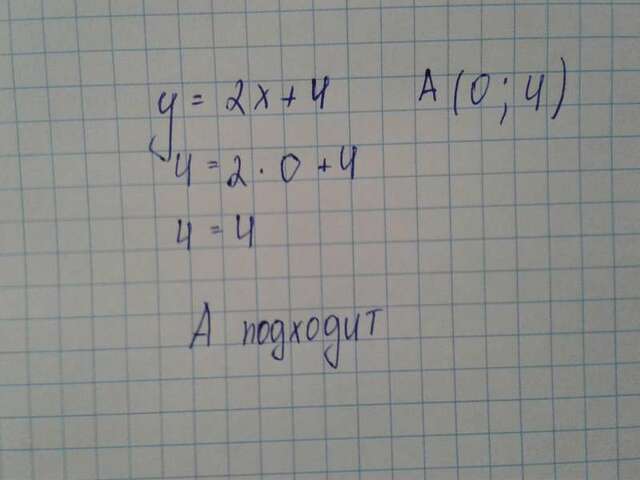 y = 2x + 4 A (0 ; 4)
4 = 2 · 0 + 4
4 = 4
А подходит